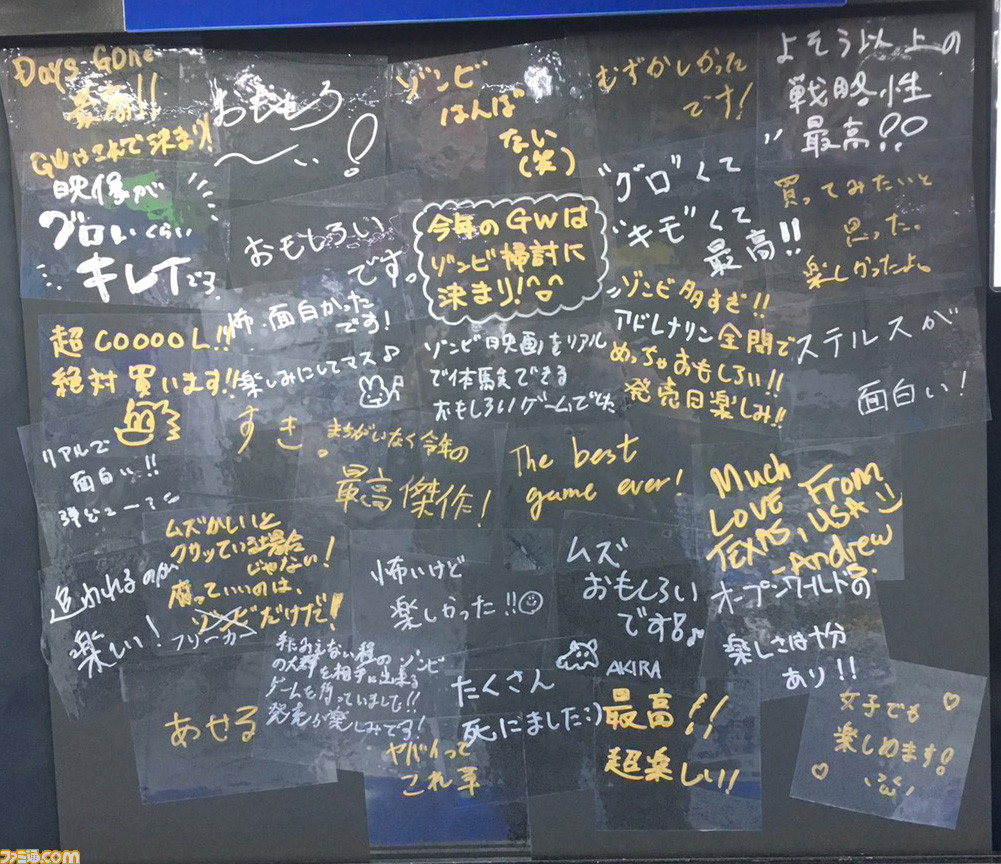 Days Gone
最高!!
GWはこれで決まり!
おもしろ
〜い!
ゾンビ
はんぱ
ない
(笑)
むずかしかった
です!
よそう以上の
戦略性
最高!!
映像が
グロいくらい
キレイです
おもしろい
です。
今年のGWは
ゾンビ掃討に
決まり!^^
"グロ"くて
"キモ"くて
最高!!
買ってみたいと
思った。
楽しかったよ。
超COOOOL!!
絶対買います!!
怖・面白かった
です!
楽しみにしてマス♪
ゾンビ映画をリアル
で体験できる
おもしろいゲームでした
ゾンビ多すぎ!!
アドレナリン全開で
めっちゃおもしろい!!
発売日楽しみ!!
ステルスが
面白い!
リアルで
面白い!!
すき。
まちがいなく今年の
最高傑作!
The best
game ever!
Much
LOVE From
TEXAS, USA :)
-Andrew
追われるのが
楽しい!
ムズかしいと
クサッている場合
じゃない!
腐っていいのは、
ゾンビだけだ!
フリーカー
怖いけど
楽しかった!!☺
ムズ
おもしろい
です♪
AKIRA
オープンワールドの
楽しさは十分
あり!!
あせる
の大群を相手に出来る
ゲームを待っていました!!
発売が楽しみです!
たくさん
死にました:)
ヤバイって
これ草
最高!!
超楽しい!
女子でも
楽しめます!
ファミ通.com